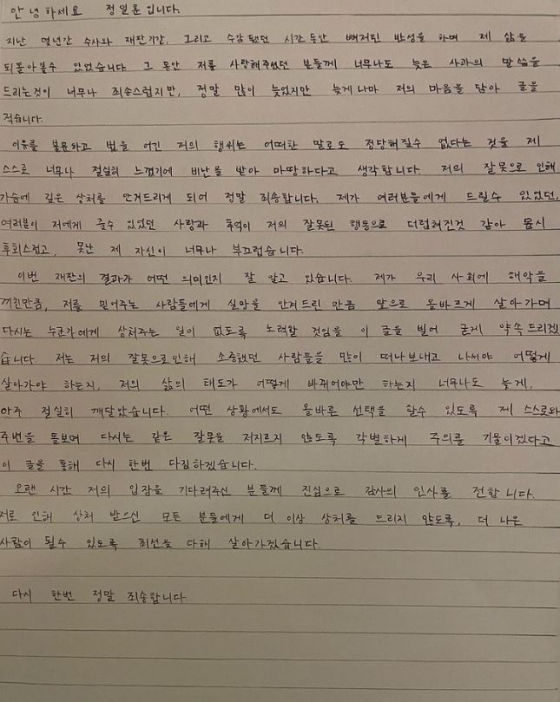 안녕하세요 정일훈입니다.
지난 몇년간 수사와 재판기간, 그리고 수감됐던 시간동안 뼈저린 반성을 하며 제 삶을
되돌아볼수 있었습니다. 그 동안 저를 사랑해주셨던 분들께 너무나도 늦은 사과의 말씀을
드리는것이 너무나 죄송스럽지만, 정말 많이 늦었지만 늦게나마 저의 마음을 담아 글을
적습니다.
이유를 불문하고 법을 어긴 저의 행위는 어떠한 말로도 정당해질수 없다는 것을 제
스스로 너무나 절실히 느끼기에 비난을 받아 마땅하다고 생각합니다. 저의 잘못으로 인해
가슴에 깊은 상처를 안겨드리게 되어 정말 죄송합니다. 제가 여러분들에게 드릴수 있었던,
여러분이 저에게 줄수 있었던 사랑과 추억이 저의 잘못된 행동으로 더럽혀진것 같아 몹시
후회스럽고, 못난 제 자신이 너무나 부끄럽습니다.
이번 재판의 결과가 어떤 의미인지 잘 알고 있습니다. 제가 우리 사회에 해악을
끼친만큼, 저를 믿어주는 사람들에게 실망을 안겨드린 만큼 앞으로 올바르게 살아가며
다시는 누군가에게 상처주는 일이 없도록 노력할 것임을 이 글을 빌어 굳게 약속드리겠
습니다. 저는 저의 잘못으로인해 소중했던 사람들을 많이 떠나보내고 나서야 어떻게
살아가야 하는지, 저의 삶의 태도가 어떻게 바뀌어야만 하는지 너무나도 늦게,
아주 절실히 깨달았습니다. 어떤 상황에서도 올바른 선택을 할수 있도록 제 스스로와
주변을 돌보며 다시는 같은 잘못을 저지르지 않도록 각별하게 주의를 기울이겠다고
이 글을 통해 다시 한번 다짐하겠습니다.
오랜 시간 저의 입장을 기다려주신 분들께 진심으로 감사의 인사를 전합니다.
저로 인해 상처 받으신 모든 분들에게 더 이상 상처를 드리지 않도록, 더 나은
사람이 될수 있도록 최선을 다해 살아가겠습니다.
다시 한번 정말 죄송합니다